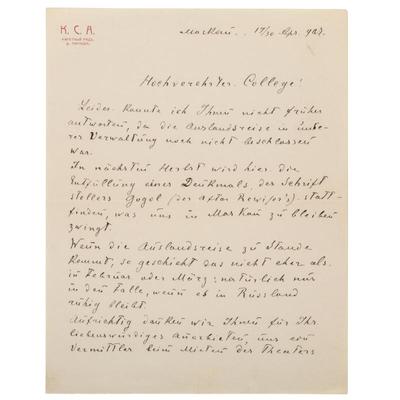 К. С. А.
КАРЕТНЫЙ РЯДЪ,
Moskau. 17/30 Apr. 907.
Hochverehrter College!
Leider konnte ich Ihnen nicht früher
antworten, da die Auslandsreise in unse-
rer Verwaltung noch nicht beschlossen
war.
Im nächsten Herbst wird hier die
Entfüllung eines Denkmals, des Schrift
stellers Gogol (der Autor Rewisor's) statt-
finden, was uns in Moskau zu bleiben
zwingt.
Wenn die Auslandsreise zu stande
kommt, so geschieht das nicht eher als
in Februar oder März; natürlich nur
in dem Falle, wenn es in Russland
ruhig bleibt.
Aufrichtig danken wir Ihnen für Ihr
liebenswürdiges Anerbieten, uns ein
Vermittler beim Mieten des Theaters